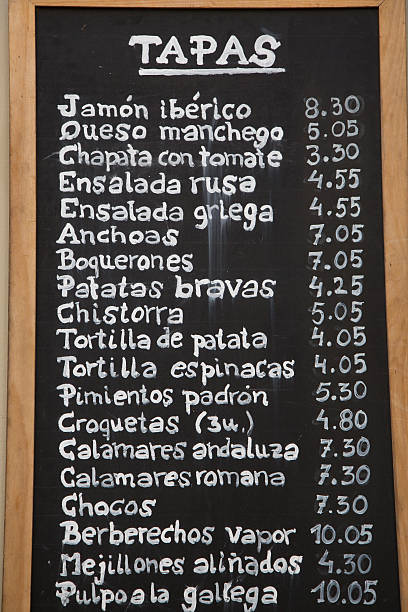 TAPAS
Jamón ibérico 8.30
Queso manchego 5.05
Chapata con tomate 3.30
Ensalada rusa 4.55
Ensalada griega 4.55
Anchoas 7.05
Boquerones 7.05
Patatas bravas 4.25
Chistorra 5.05
Tortilla de patata 4.05
Tortilla espinacas 4.05
Pimientos padrón 5.30
Croquetas (3u.) 4.80
Calamares andaluza 7.30
Calamares romana 7.30
Chocos 7.30
Berberechos vapor 10.05
Mejillones aliñados 4.30
Pulpo a la gallega 10.05